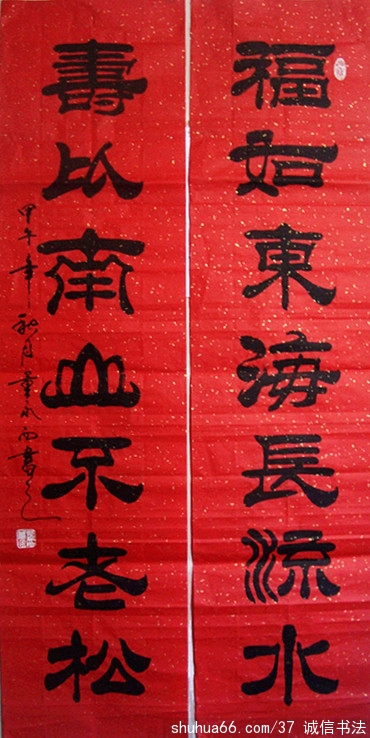 福如東海長流水
壽以南山不老松
甲午年秋月
書之
shuhua66.com/37 诚信书法